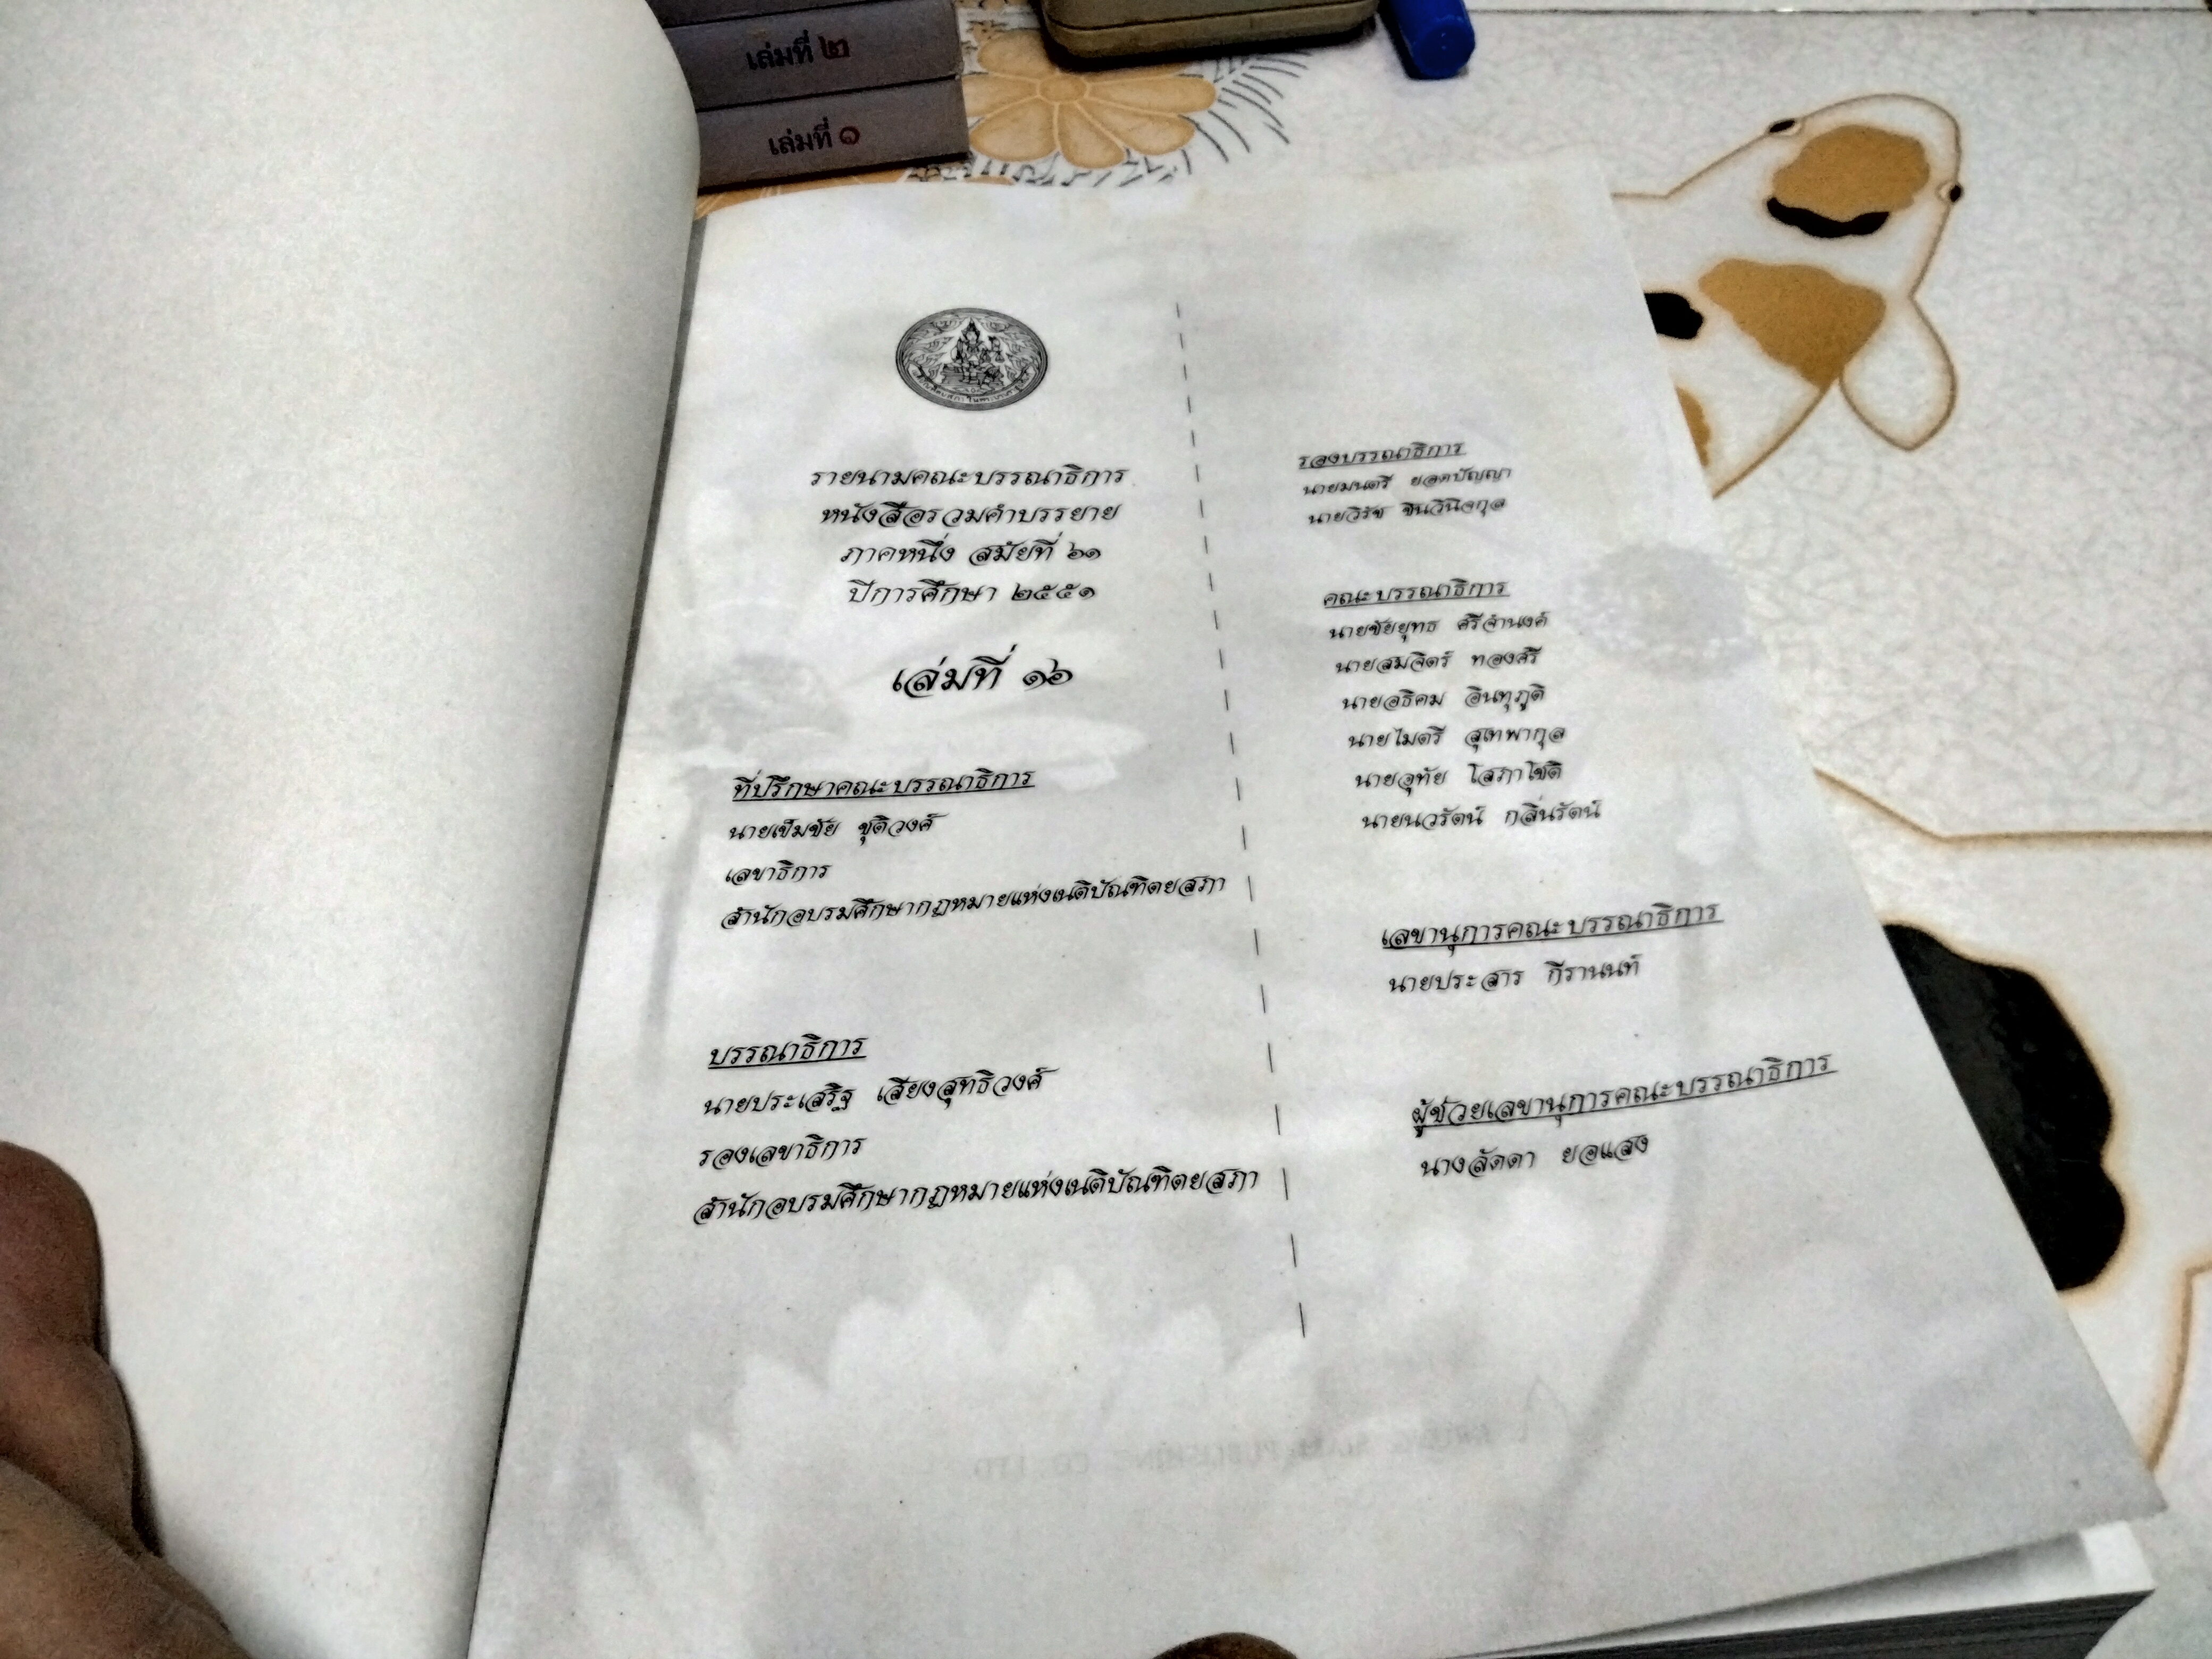 เล่มที่ ๒
เล่มที่ ๑
รายนามคณะบรรณาธิการ
หนังสือรวมคำบรรยาย
ภาคหนึ่ง สมัยที่ ๖๑
ปีการศึกษา ๒๕๕๑
เล่มที่ ๑๖
ที่ปรึกษาคณะบรรณาธิการ
นายเข็มชัย ชุติวงศ์
เลขาธิการ
สำนักอบรมศึกษากฎหมายแห่งเนติบัณฑิตยสภา
บรรณาธิการ
นายประเสริฐ เสียงสุทธิวงศ์
รองเลขาธิการ
สำนักอบรมศึกษากฎหมายแห่งเนติบัณฑิตยสภา
รองบรรณาธิการ
นายมนตรี ยอดปัญญา
นายวิรัช ชินวินิจกุล
คณะบรรณาธิการ
นายชัยยุทธ ศรีจำนงค์
นายสมจิตร์ ทองศรี
นายอธิคม อินทุภูติ
นายไมตรี สุเทพากุล
นายอุทัย โสภาโชติ
นายนวรัตน์ กลิ่นรัตน์
เลขานุการคณะบรรณาธิการ
นายประสาร กีรานนท์
ผู้ช่วยเลขานุการคณะบรรณาธิการ
นางลัดดา ยอแสง